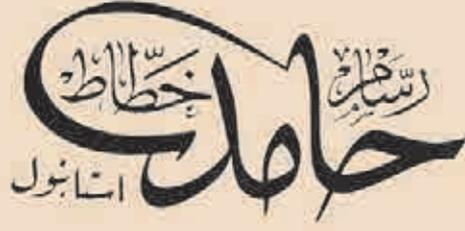 رسّام
خطّاط
حامد
استانبول